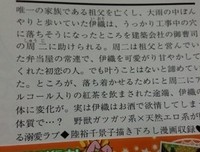 唯一の家族である祖父を亡くし、大雨の中ぼん
やりと歩いていた伊織は、うっかり工事中の穴
に落ちそうになったところを建設会社の御曹司
の周二に助けられる。周二は祖父と営んでいた
弁当屋の常連で、伊織を可愛がり甘やかして
くれた初恋の人。でも叶うことはないと諦めて
いた。ところが、落ち着かせるためにと周二にア
ルコール入りの紅茶を飲まされた途端、伊織の
体に変化が。実は伊織はお酒で欲情してしま
体質で…？ 野獣ガツガツ系×天然エロボディ
る溺愛ラブ◆陸裕千景子描き下ろし漫画収録♥